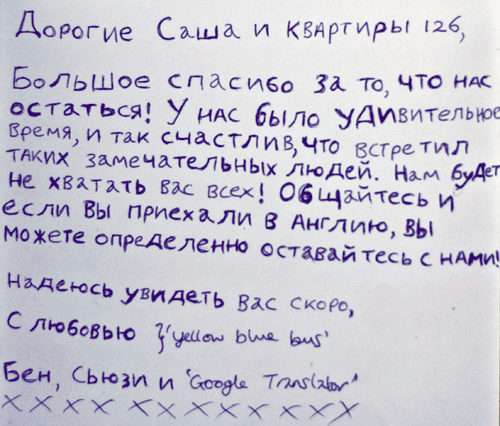 Дорогие Саша и квартиры 126,
Большое спасибо за то, что нас
остаться! У нас было удивительное
время, и так счастлив, что встретил
таких замечательных людей. Нам будет
не хватать вас всех! Общайтесь и
если вы приехали в Англию, вы
можете определенно оставайтесь с нами!
Надеюсь увидеть вас скоро,
С любовью }'yellow blue bus'
Бен, Сьюзи и 'Google Translator'
X X X X X X X X X X X X